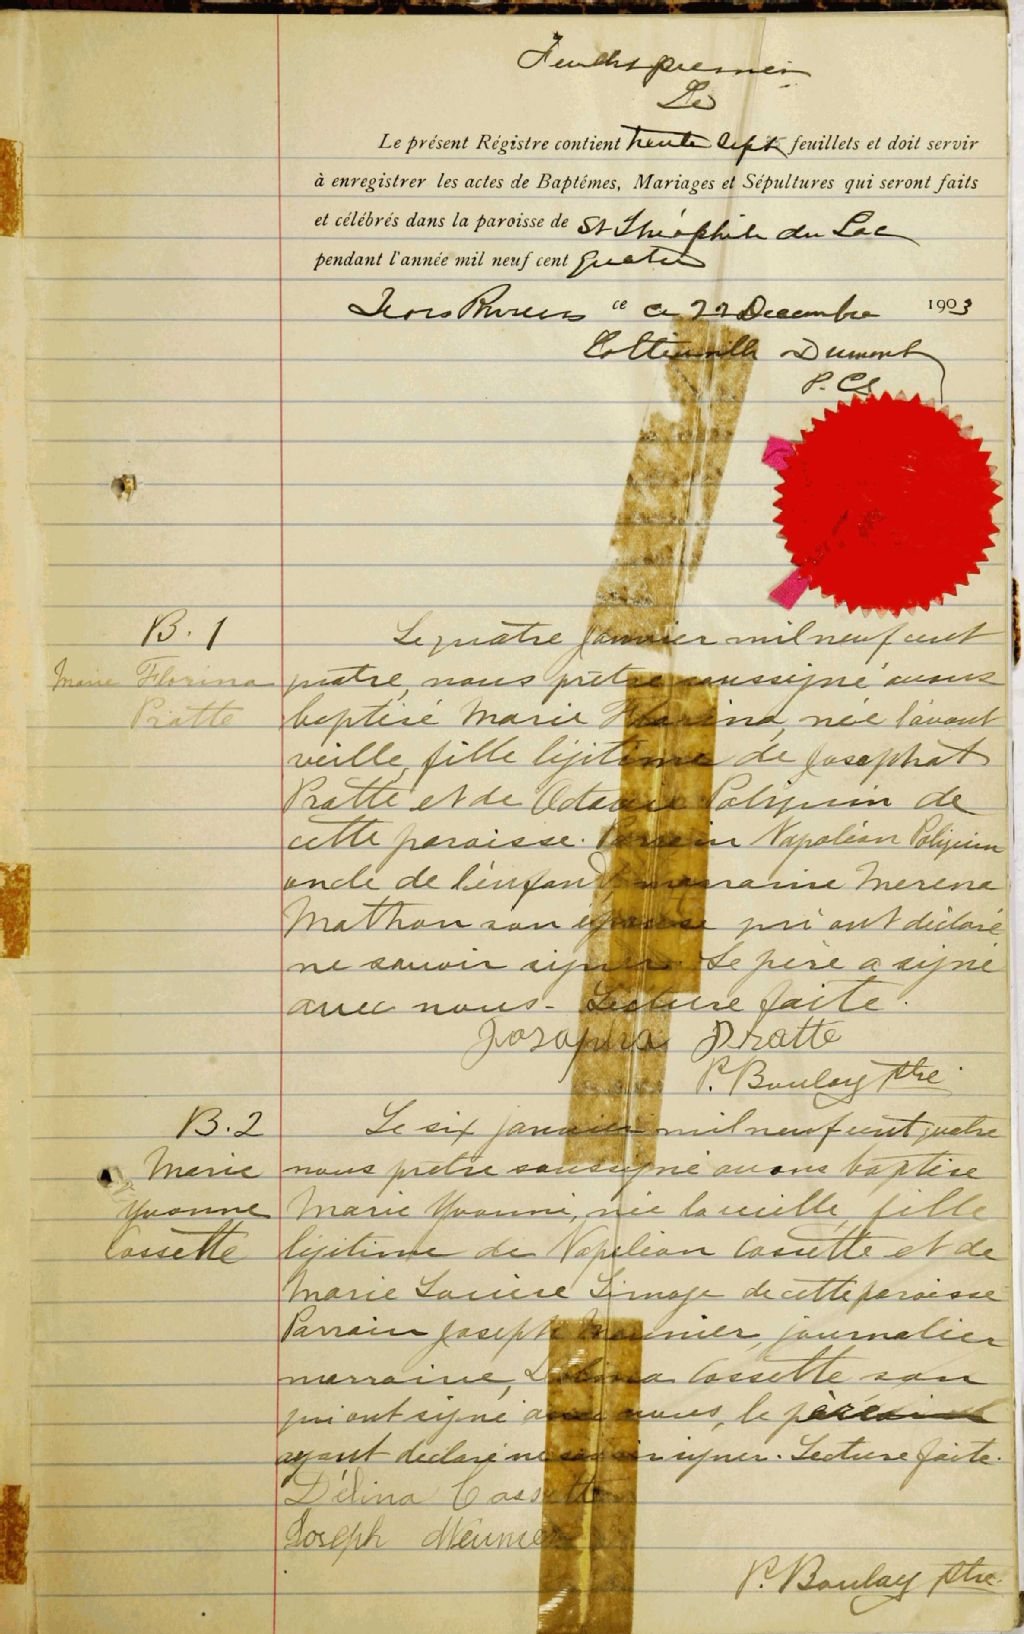 Feuillet premier
Le
Le présent Régistre contient trente sept feuillets et doit servir
à enregistrer les actes de Baptêmes, Mariages et Sépultures qui seront faits
et célébrés dans la paroisse de St Théophile du Lac
pendant l'année mil neuf cent quatre
Trois Rivières ce ce 22 Decembre 1903
Dumont
P. C. S.
B. 1
Marie Florina
Pratte
Le quatre janvier mil neuf cent
quatre, nous prêtre soussigné avons
baptisé Marie Florina, née l'avant
veille, fille légitime de Josaphat
Pratte et de Octavie Poliquin de
cette paroisse. Parrain Napoléon Poliquin
oncle de l'enfant, marraine Merena
Mathon son épouse qui ont déclaré
ne savoir signer. Le père a signé
avec nous - Lecture faite.
Josapha Pratte
P. Boulay Ptre
B. 2
Marie
Yvonne
Cossette
Le six janvier mil neuf cent quatre
nous prêtre soussigné avons baptisé
Marie Yvonne, née la veille, fille
légitime de Napoléon Cossette et de
Marie Louise Limoge de cette paroisse
Parrain Joseph Meunier, journalier
marraine, Délina Cossette son
qui ont signé avec nous, le père
ayant déclaré ne savoir signer. Lecture faite.
Délina Cossette
Joseph Meunier
P. Boulay Ptre.